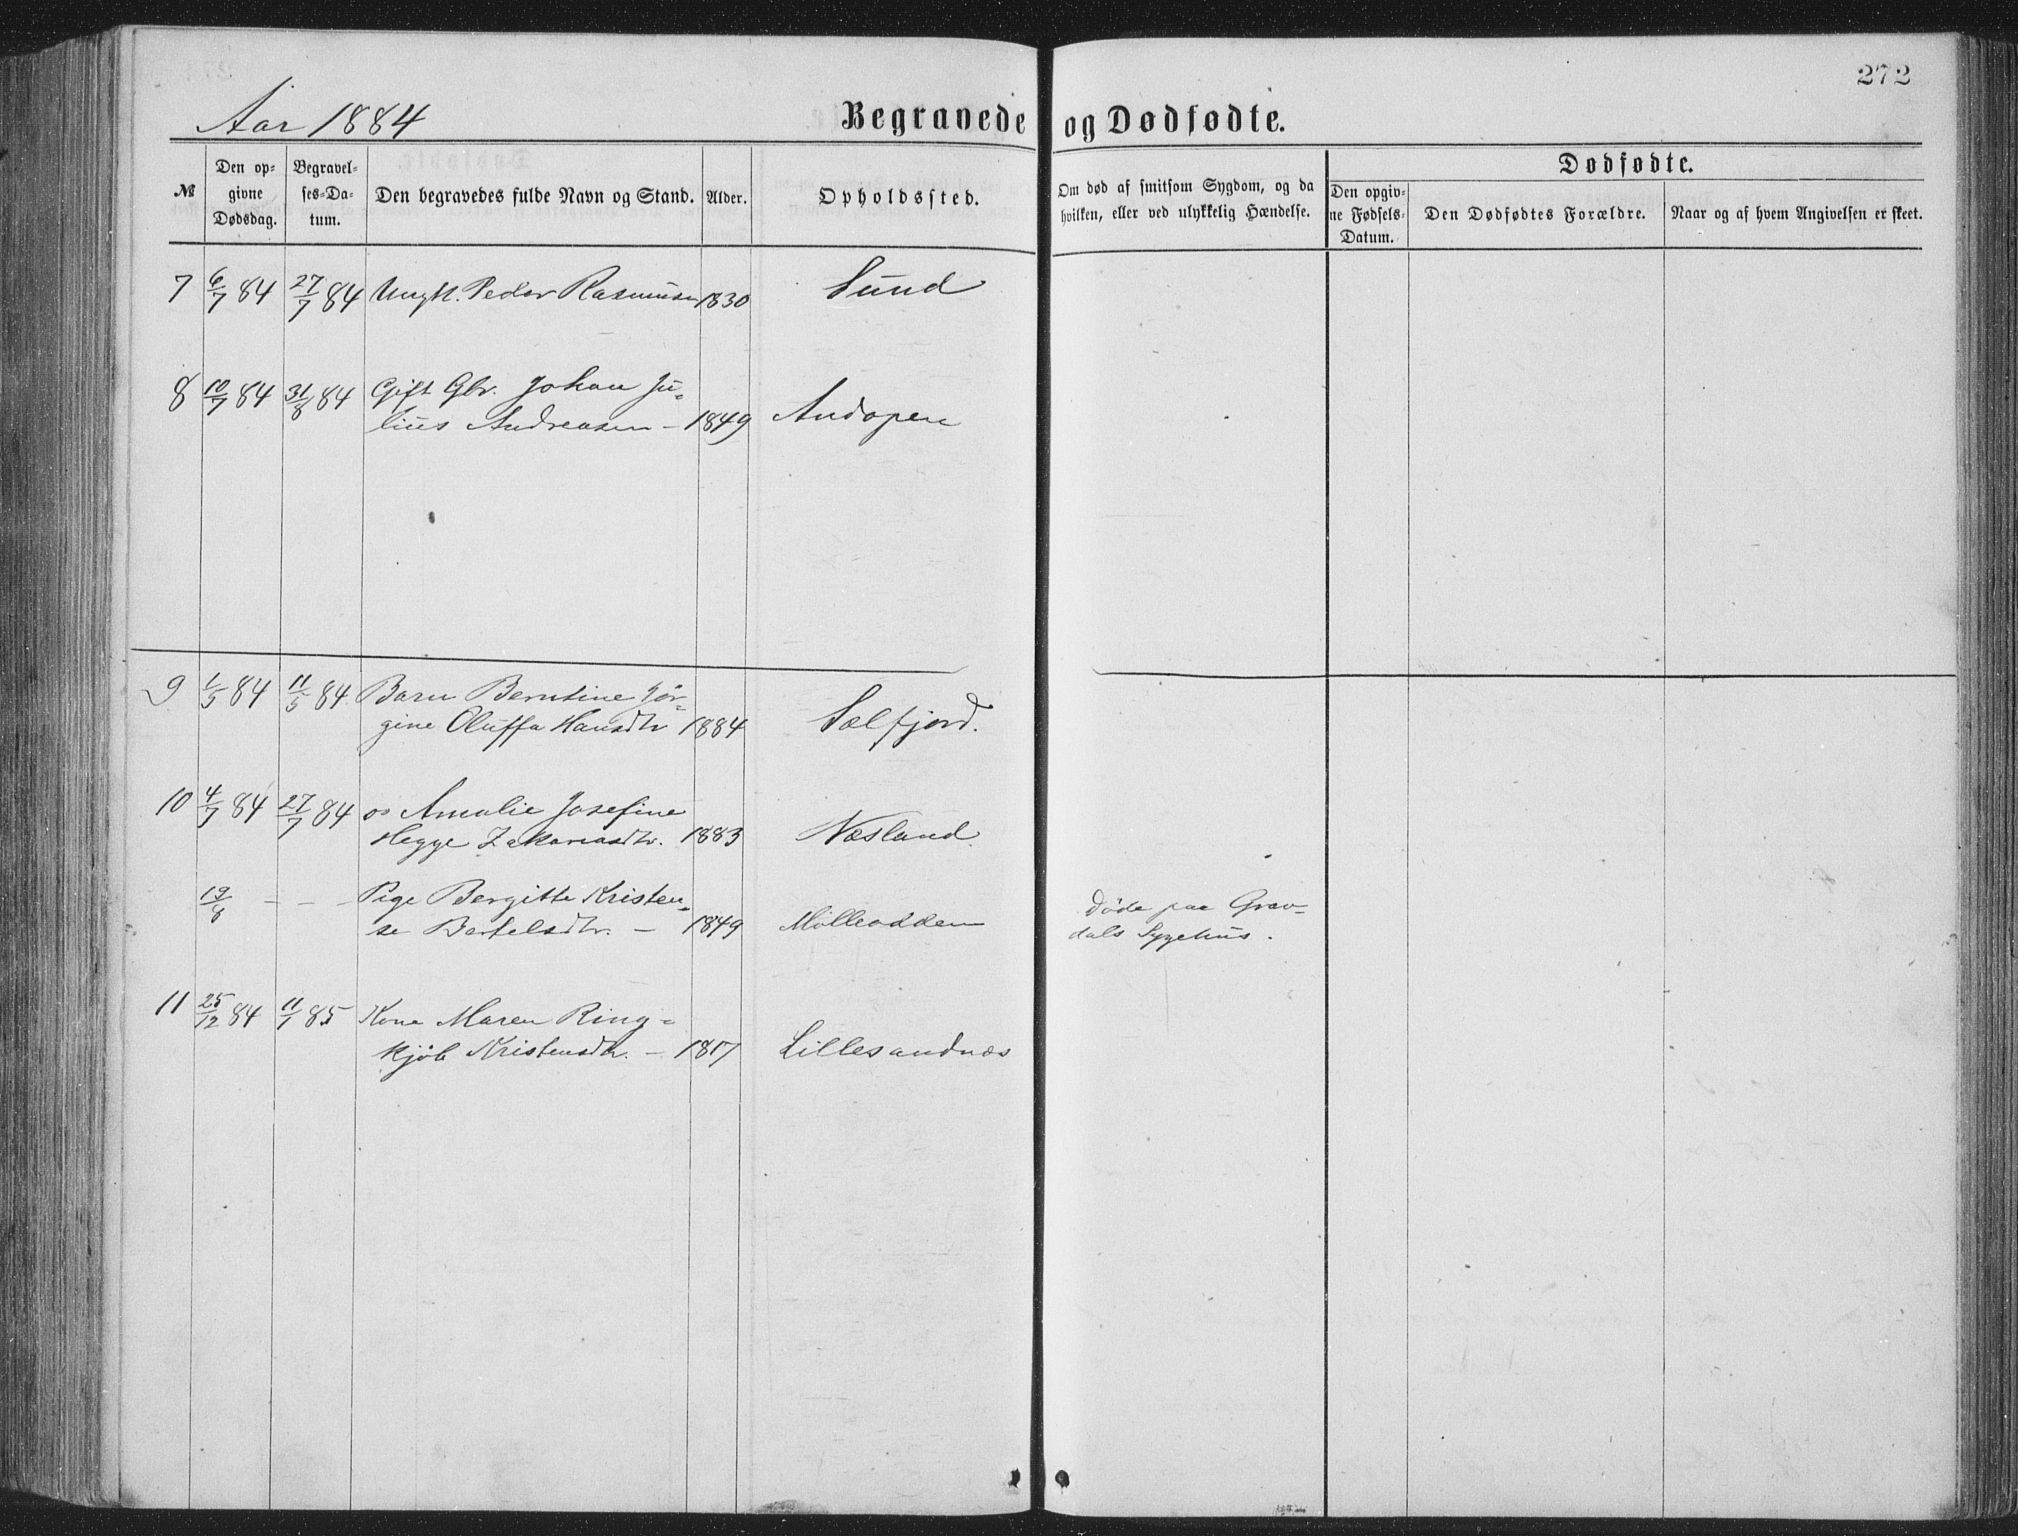 272
Aar 1884 Begravede og Dødfødte.
№ Den opgivne Dødsdag. Begravelses-Datum. Den begravedes fulde Navn og Stand. Alder. Opholdssted. Om død af smitsom Sygdom, og da hvilken, eller ved ulykkelig Hændelse. Dødfødte. Den opgivne Fødsels-Datum. Den Dødfødtes Forældre. Naar og af hvem Angivelsen er skeet.
7 6/7 84 27/7 84 Ungk. Peder Rasmusen 1830 Sund
8 10/7 84 31/8 84 Gift Gbr. Johan Ju-
lius Andreasen – 1849 Andopen
9 1/5 84 11/5 84 Barn Berntine Jør-
gine Oluffa Hansdtr 1884 Selfjord.
10 4/7 84 27/7 84 do Amalie Josefine
Hegge Zakariasdtr. 1883 Næsland
19/8 – – – Pige Bergitte Kristen-
se Bertelsdtr. – 1849 Mølleodden døde paa Grav-
dals Sygehus.
11 25/12 84 11/1 85 Kone Maren Ring-
kjöb Kristensdtr. – 1817 Lillesandnæs